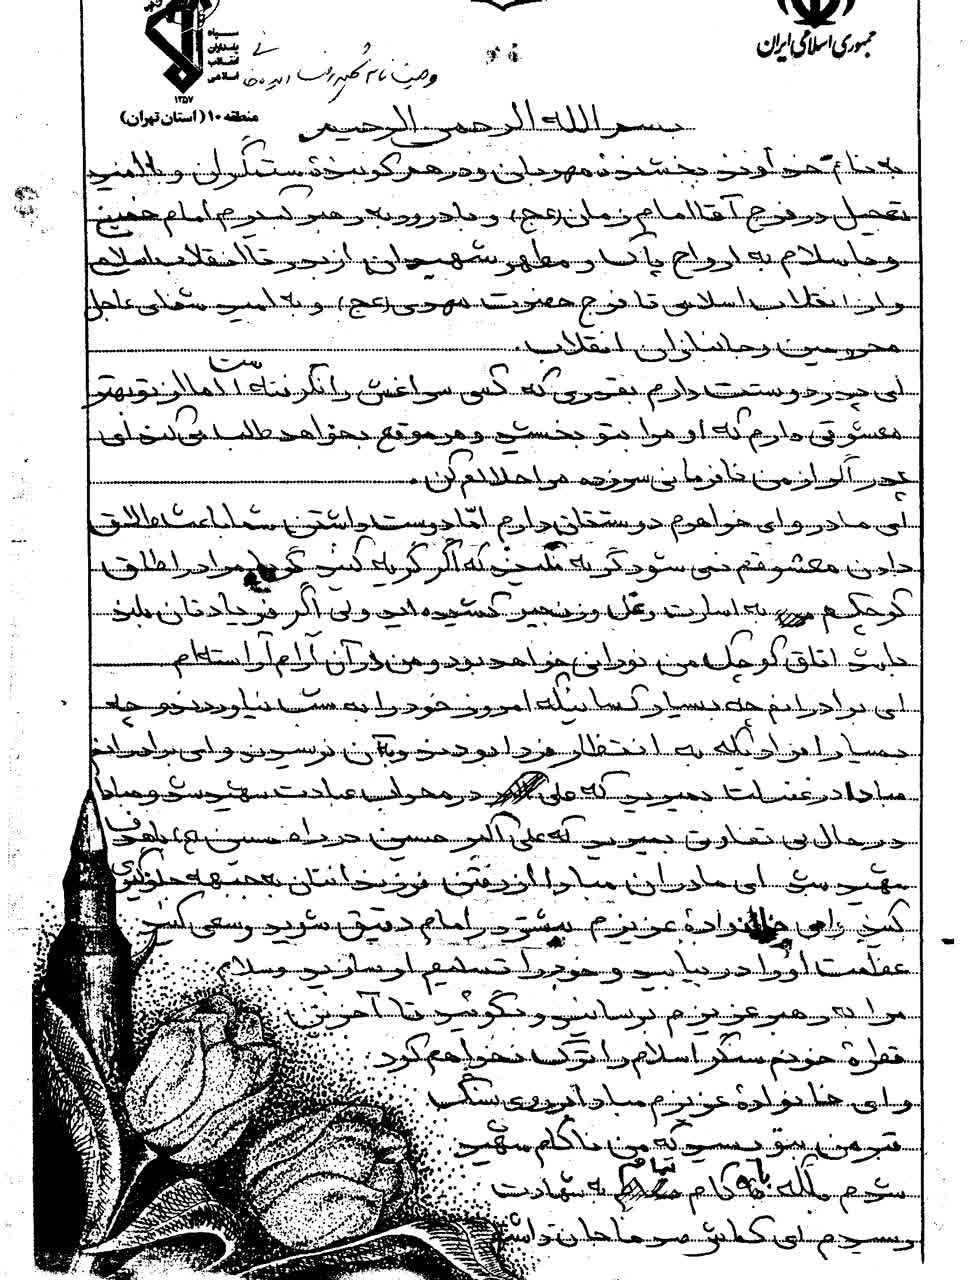 جمهوری اسلامی ایران
سپاه
پاسداران
انقلاب
اسلامی
۱۳۵۷
منطقه ۱۰ (استان تهران)
وصیت نامه شهید رضا
بسم الله الرحمن الرحیم
به نام خداوند بخشندهٔ مهربان و درهم کوبندهٔ ستمگران و با امید
تعجیل در فرج آقا امام زمان (عج) و با درود به رهبر کبیرم امام خمینی
و با سلام به ارواح پاک و مطهر شهیدان از بدر تا انقلاب اسلامی
و از انقلاب اسلامی تا فرج حضرت مهدی (عج) و به امید شفای عاجل
مجروحین و جانبازان انقلاب.
ای پدر دوستت دارم بقدری که کسی سراغش را نگرفته است اما از تو بهتر
معشوقی دارم که او مرا بتو بخشید و هر موقع بخواهد طلب می کند ای
پدر اگر از من نافرمانی سر زده مرا حلالم کن.
ای مادر وای خواهرم دوستتان دارم امّا دوست داشتن شما باعث طلاق
دادن معشوقم نمی شود گریه نکنید که اگر گریه کنید گویا مرا در اطاق
کوچکم به اسارت و غل و زنجیر کشیده اید ولی اگر فریادتان بلند
باشد اتاق کوچک من نورانی خواهد بود و من در آن آرام آراسته ام
ای برادرانم چه بسیار کسانیکه امروز خود را به شب نیاوردند و چه
بسیار افرادیکه به انتظار فردا بودند و به آن نرسیدن و ای برادرانم
مبادا در غفلت بمیرید که علی در محراب عبادت شهید شد و مبادا
در حال بی تفاوتی بمیرید که علی اکبر حسین در راه حسین (ع) با هدف
شهید شد ای مادران مبادا از رفتن فرزندانتان به جبهه جلوگیری
کنید و ای خانوادهٔ عزیزم بیشتر در امام دقیق شوید و سعی کنید
عظمت او را دریابید و خود را تسلیم او سازید و سلام
مرا به رهبر عزیزم برسانید و بگوئید تا آخرین
قطرهٔ خونم سنگر اسلام را ترک نخواهم کرد
و ای خانوادهٔ عزیزم مبادا بر روی سنگ
قبر من بنویسید که من ناکام شهید
شدم بلکه با کام تمام به شهادت
رسیدم ای کاش صد ها جان داشتم